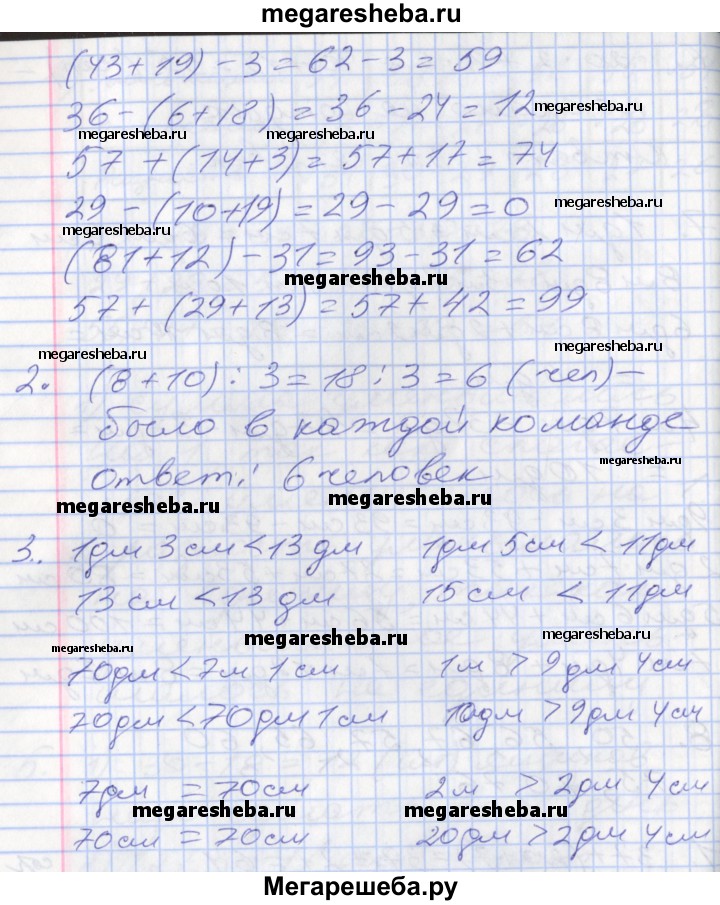 megaresheba.ru
(43+19) - 3 = 62 - 3 = 59
36 - (6+18) = 36 - 24 = 12 megaresheba.ru
megaresheba.ru megaresheba.ru
57 + (14+3) = 57 + 17 = 74
29 - (10+19) = 29 - 29 = 0 megaresheba.ru
megaresheba.ru
(81+12) - 31 = 93 - 31 = 62
megaresheba.ru
57 + (29+13) = 57 + 42 = 99
megaresheba.ru megaresheba.ru
2. (8+10) : 3 = 18 : 3 = 6 (чел) -
было в каждой команде
megaresheba.ru
ответ: 6 человек
megaresheba.ru megaresheba.ru
3. 1дм 3см < 13дм 1дм 5см < 11дм
13см < 13дм 15см < 11дм
megaresheba.ru megaresheba.ru
megaresheba.ru
70дм < 7м 1см 1м > 9дм 4см
70дм < 70дм 1см 10дм > 9дм 4см
7дм = 70см 2м > 2дм 4см
megaresheba.ru megaresheba.ru
70см = 70см 20дм > 2дм 4см
Мегарешеба.ру